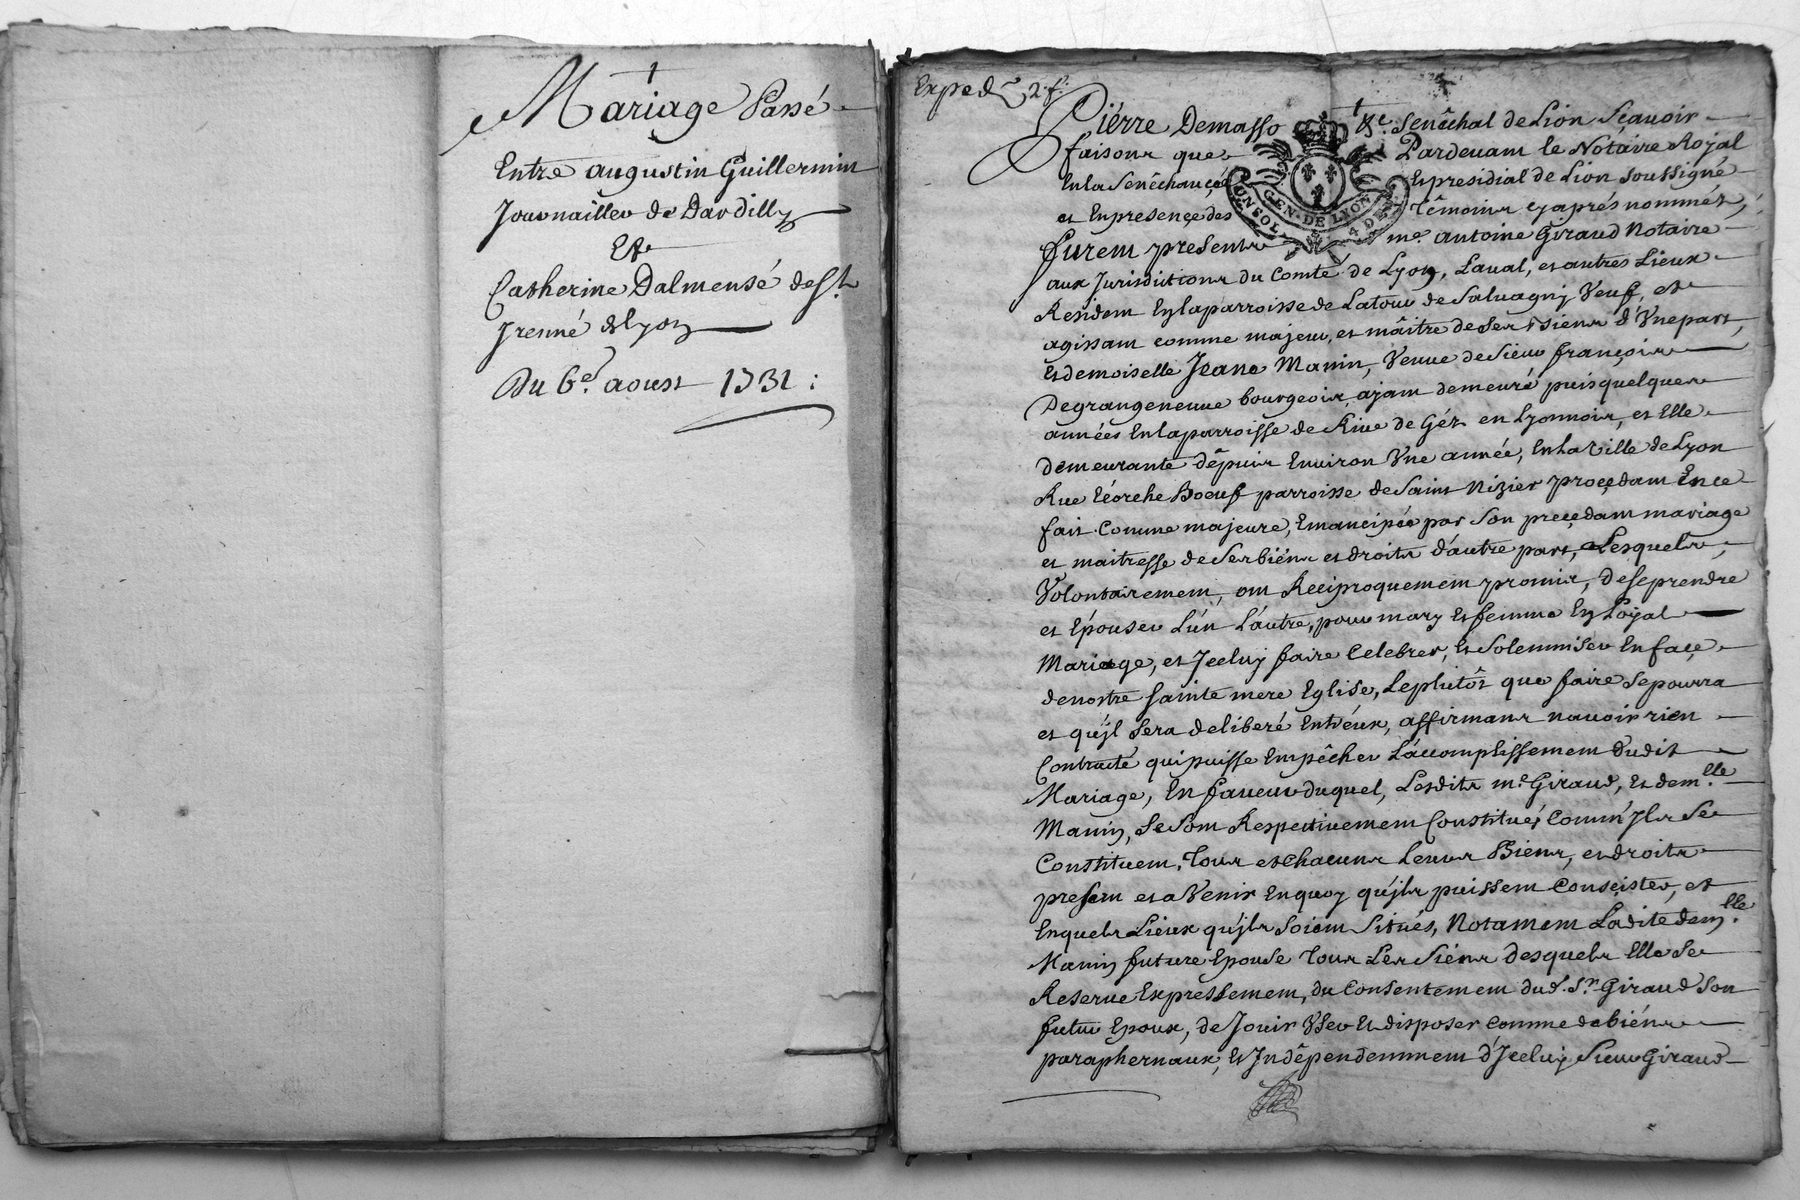 Mariage Passé
Entre augustin Guillermin
Journallier de Dardilly
Et
Catherine Dalmensé de St
Jrenné de Lyon
Du 6e. aoust 1731 :
Exped. 2. f.
Pierre Demasso &c. Senêchal de Lion Sçauoir
faisons que Pardeuant le Notaire Royal
En la Senêchaucée Et presidial de Lion soussigné
et En presençe des Têmoins cy aprés nommés,
GEN. DE LYON
4 DEN
Furent presents me. antoine Giraud Notaire
aux Jurisdictions du Comté de Lyon, Laual, et autres Lieux
Resident En la parroisse de Latour de Saluagny Veuf, et
agissant comme majeur, et maître de ses Biens d'Vne part,
Et demoiselle Jeane Manin, Veuue de Sieur françois
Degrangeneuue bourgeois, ajant demeuré puis quelques
années En la parroisse de Riue de Géz en Lyonnois, et Elle
demeurante dêpuis Enuiron Vne année, En la Ville de Lyon
Rue Ecorche Boeuf parroisse de Saint Nizier proçedant En ce
fait Comme majeure, Emancipée par Son preçedant mariage
et maitresse de Ses biéns et droits d'autre part, Lesquels,
Volontairement, ont Reciproquement promis, de se prendre
et Epouser L'un L'autre, pour mary et femme En Loyal
Mariage, et Jceluy faire Celebrer, et Solemniser En façe
de nostre Sainte mere Eglise, Le plutôt que faire Se pourra
et qu'jl Sera deliberé Entr'eux, affirmans n'auoir rien
Contracté qui puisse Empêcher L'accomplissement dudit
Mariage, En faueur duquel, Lesdits me. Giraud, et demlle.
Manin, Se Sont Respectiuement Constitués Comm' Jls Se
Constituent, Tous et Chacuns Leurs Biens, et droits
present et a Venir En quoy qu'jls puissent Consçister, et
En quels Lieux qu'jls Soient Sitüés, Notament Ladite demlle.
Manin future Epouse Tous Les Siens desquels Elle Se
Reserue Expressement, du Consentement dud. Sr. Giraud Son
futur Epoux, de Jouir Vser et disposer Comme de biéns
paraphernaux, et Jndêpendemment d'Jceluy Sieur Giraud